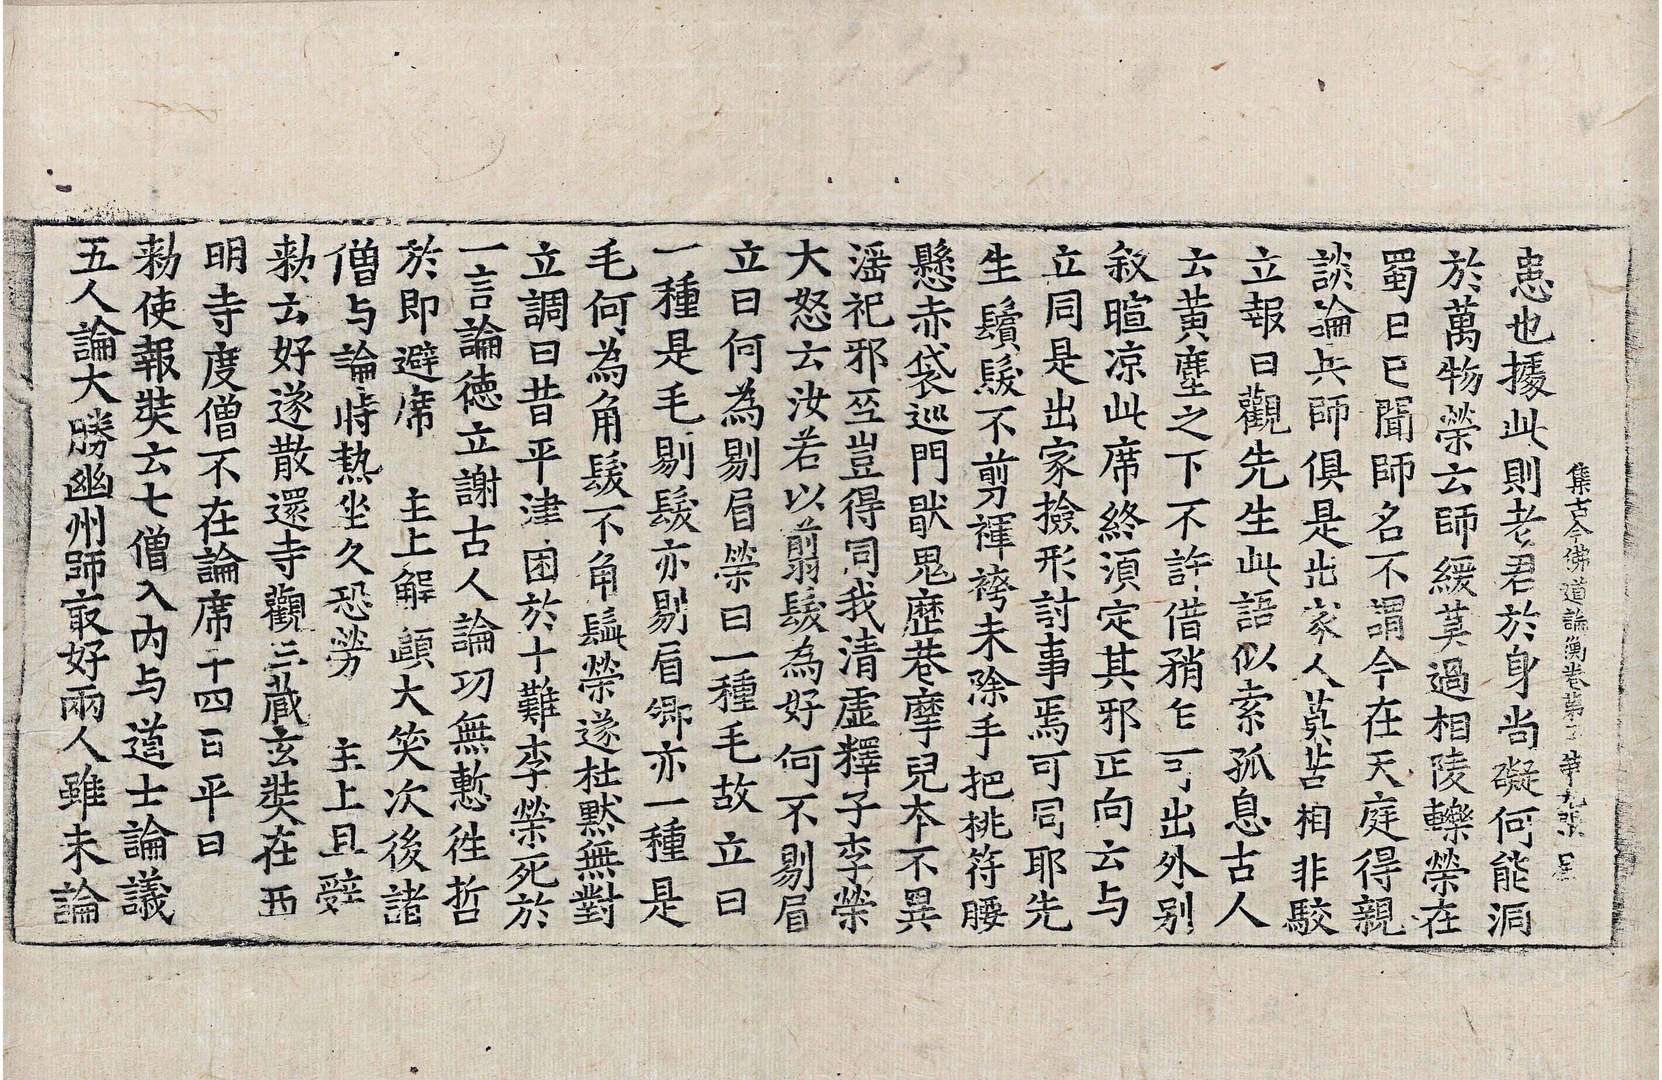 集古今佛道論衡卷第二 第九張 星
患也據此則老君於身尚礙何能洞
於萬物榮云師緩莫過相陵轢榮在
蜀日已聞師名不謂今在天庭得親
談論共師俱是出家人莫苦相非駮
立報曰觀先生此語似索孤息古人
云黃塵之下不許借稍乍可出外別
叙暄凉此席終須定其邪正向云与
立同是出家撿形討事焉可同耶先
生鬚髮不剪褌袴未除手把桃符腰
懸赤袋巡門猒鬼歷巷摩兒本不異
淫祀邪巫豈得同我清虛釋子李榮
大怒云汝若以翦髮為好何不剔眉
立曰何為剔眉榮曰一種毛故立曰
一種是毛剔髮亦剔眉卿亦一種是
毛何為角髮不角鬚榮遂杜默無對
立調曰昔平津困於十難李榮死於
一言論德立謝古人論功無慙往哲
於即避席 主上解頤大笑次後諸
僧与論時熱坐久恐勞 主上且辭
勑云好遂散還寺觀三藏玄奘在西
明寺度僧不在論席十四日平旦
勑使報奘云七僧入內与道士論議
五人論大勝幽州師㝡好兩人雖未論